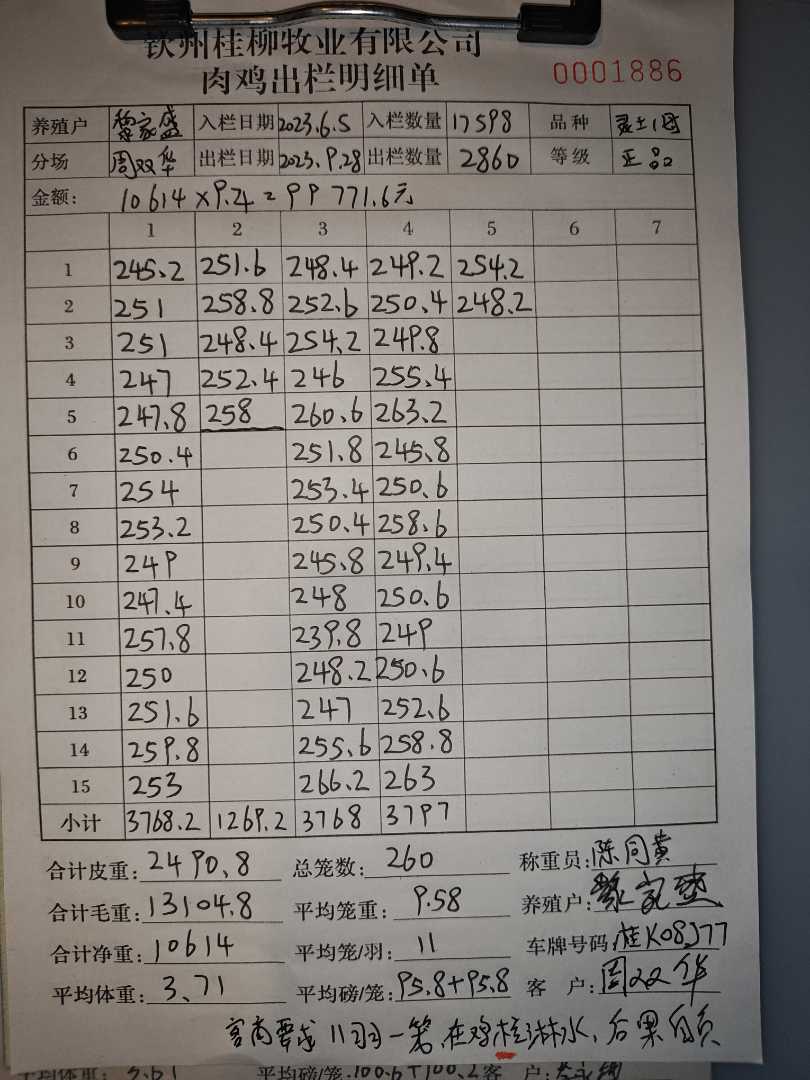 钦州桂柳牧业有限公司
肉鸡出栏明细单 0001886
养殖户 黎家盛 入栏日期 2023.6.5 入栏数量 17598 品种
分场 周双华 出栏日期 2023.9.28 出栏数量 2860 等级 正品
金额: 10614×9.4=99771.6元
1 2 3 4 5 6 7
1 245.2 251.6 248.4 249.2 254.2
2 251 258.8 252.6 250.4 248.2
3 251 248.4 254.2 249.8
4 247 252.4 246 255.4
5 247.8 258 260.6 263.2
6 250.4 251.8 245.8
7 254 253.4 250.6
8 253.2 250.4 258.6
9 249 245.8 249.4
10 247.4 248 250.6
11 257.8 239.8 249
12 250 248.2 250.6
13 251.6 247 252.6
14 259.8 255.6 258.8
15 253 266.2 263
小计 3768.2 1269.2 3768 3797
合计皮重: 2490.8 总笼数: 260 称重员: 陈同黄
合计毛重: 13104.8 平均笼重: 9.58 养殖户: 黎家盛
合计净重: 10614 平均笼/羽: 11 车牌号码: 桂K08J77
平均体重: 3.71 平均磅/笼: 95.8+95.8 客 户: 周双华
客商要求11羽一笼,在鸡栏淋水,后果自负
平均体重: 3.61 平均磅/笼: 100.6+100.2 客 户: